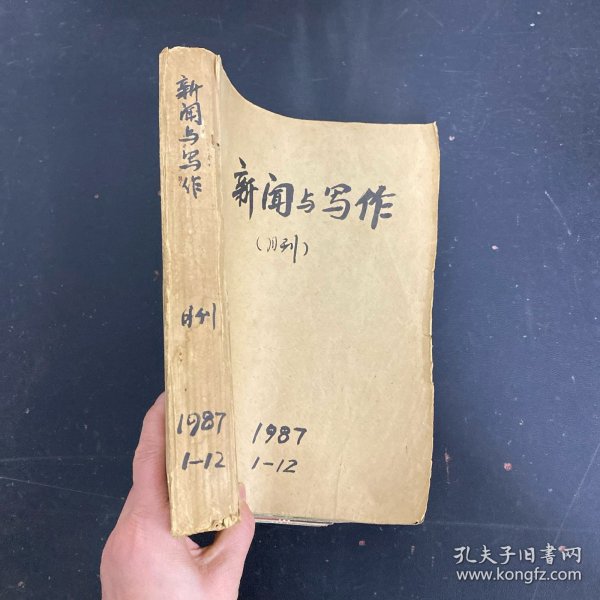 新闻与写作
月刊
1987
1-12
新闻与写作
(月刊)
1987
1-12
孔夫子旧书网
www.kongfz.com